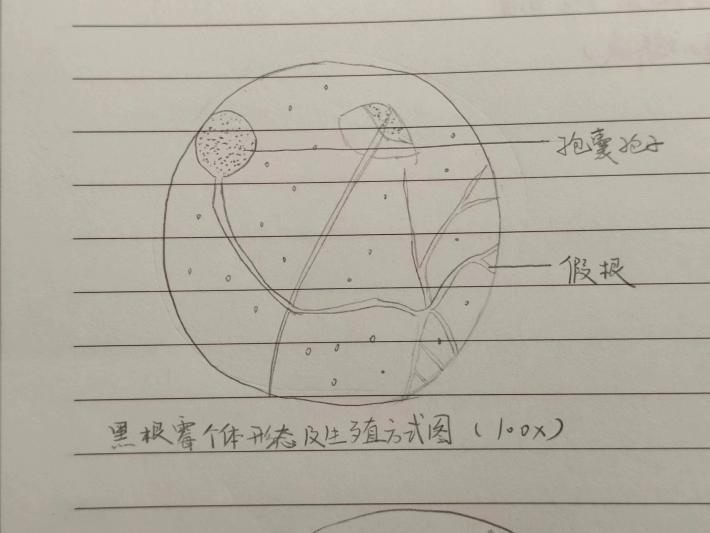 孢囊孢子
假根
黑根霉个体形态及生殖方式图（100X）